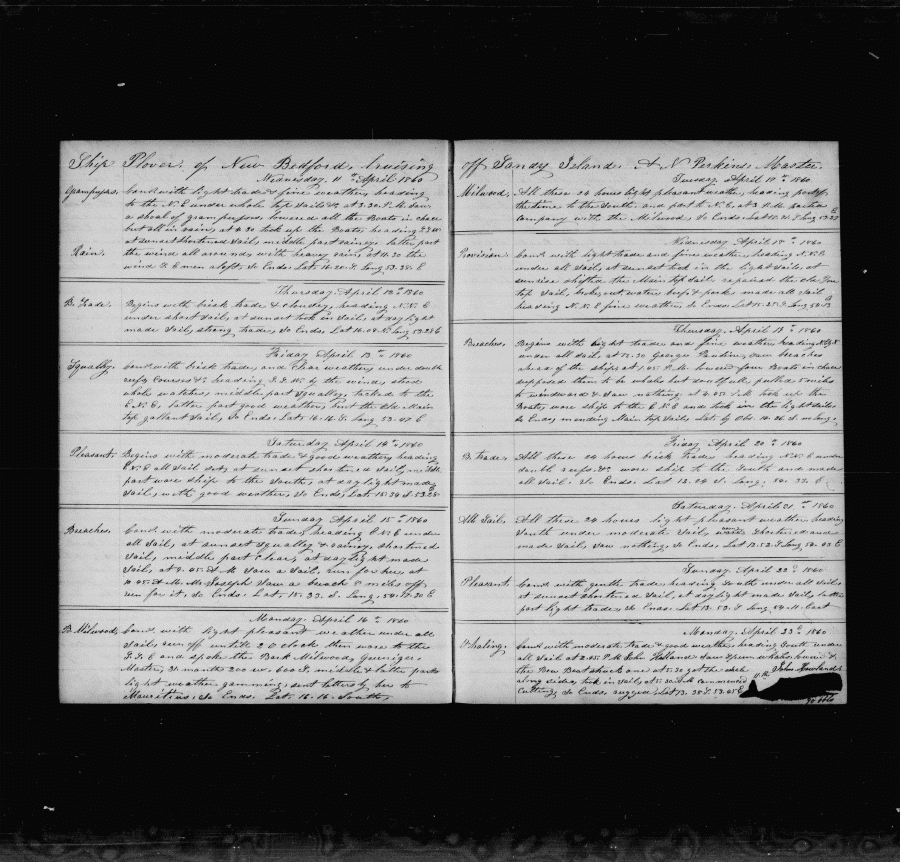 Ship Plover, of New Bedford, Cruising
Wednesday, 11th April 1860
Grampuses. Comd with light trade & fine weather, heading
to the N.E under whole top Sails &c, at 3.30 P.M. Saw
a shoal of grampuses, lowered all the Boats in chase
but all in vain, at 4.30 took up the Boats, heading
at sunset shortened Sail, middle part rainey, latter part
Rain. the wind all around with heavy rain, at 11.30 the
wind men aloft, So Ends. Lat. 16.20 S. Long 53.28 E
Thursday, April 12th 1860
B. Trade. Begins with brisk trade & cloudey, heading N.N.E
under short Sail, at sunset took in Sail, at daylight
made Sail, strong trade, So Ends. Lat 16.04 Long 53.28 E
Friday April 13th 1860
Squally. Comd with brisk trade, and clear weather, under double
reefs Courses &c heading by the wind, stood
whole watches, middle part squalley, tacked to the
E.N.E, latter part good weather, bent the Main
top gallant Sail, So Ends. Lat 16.16 S. Long 53.47 E
Saturday April 14th 1860
Pleasant. Begins with moderate trade & good weather, heading
E.N.E all Sail set, at sunset shortened Sail, middle
part wore ship to the South, at daylight made
Sail, with good weather, So Ends, Lat 15.39 S. 53.28
Sunday April 15th 1860
Breaches. Comd with moderate trade, heading E.N.E under
all Sail, at sunset squalley & rainey, shortened
Sail, middle part clear, at daylight made
Sail, at 9.05 A.M Saw a Sail, run for her, at
10.05 A.M. Mr Joseph Saw a breach 5 miles off
run for it, So Ends. Lat. 15.33. S. Long. 54.17.30 E
Monday. April 16th 1860
B. Milwood, Comd with light pleasant weather under all
Sail, run off untill 2 O clock then wore to the
and spoke the Bark Milwood,
Master, 21 months 200 w. 600 S. middle & latter parts
light weather, gamming, sent letters by her to
Mauritius, So Ends. Lat. 16.16. South,
off Sandy Island. A N Perkins. Master
Tuesday, April 17th 1860
Milwood, All these 24 hours light pleasant weather, heading part of
the time to the South, and part to N.E, at 3 P.M. parted
company with the Milwood, So Ends Lat Long 53.22
Wednesday April 18th 1860
Provision. Comd with light trade and fine weather, heading N.N.E
under all Sail, at sunset took in the light Sails, at
sunrise shifted the Main top Sail, repaired the old Fore
top Sail, broke out water beef & pork, made all Sail
heading N.N.E fine weather, So Ends Lat 15.25 S. Long 54.13
Thursday, April 19th 1860
Breaches, Begins with light trade and fine weather, heading
under all Sail, at 12.30 George Saw breaches
ahead of the ship, at 1.05 P.M. lowered four Boats in chase
supposed them to be whales but doubtfull, pulled 5 miles
to windward & Saw nothing, at 4.05 P.M. took up the
Boats, wore ship to the E.N.E and took in the light Sails
So Ends, mending Main top Sail, Lat by Obs. 14.26 S. no Long,
Friday April 20th 1860
B. trade, All these 24 hours brisk trade, heading N.N.E under
double reefs &c. wore ship to the South and made
all Sail, So Ends Lat 13.24 S. Long. 54. 33. E.
Saturday, April 21st 1860
All Sail, All these 24 hours light pleasant weather heading
South under moderate Sail, shortened and
made Sail, Saw nothing, So Ends Lat 13.52 S. Long 54.05 E
Sunday, April 22d 1860
Pleasant. Comd with gentle trade, heading South under all Sail,
at sunset shortened Sail, at daylight made Sail, latter
part light trade, So Ends. Lat 13.53. S Long 54.11. East
Monday, April 23d 1860
Whaling. Comd with moderate trade & good weather, heading South, under
all Sail at 2.05 P.M. John Holland Saw Sperm whales,
the Bow Boat struck one, at 5.30 got the whale
along side, took in Sail, at 5.30 A.M commenced
cutting, So Ends, rugged, Lat 13.38 S. 53.05 E
John Rowland
90 bbls